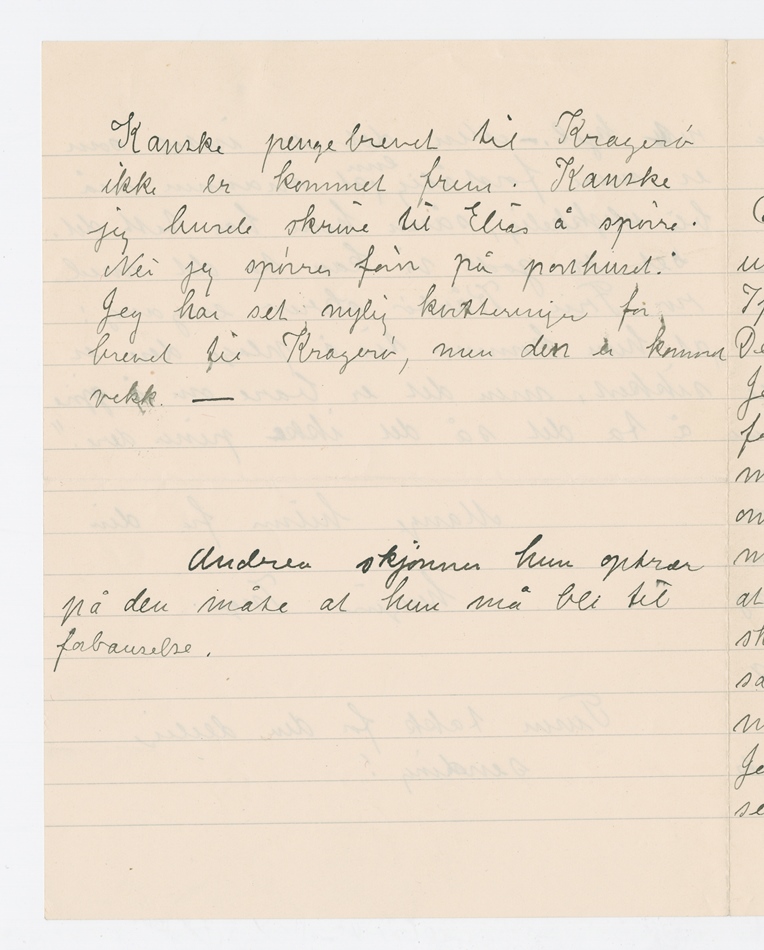 Kanske pengebrevet til Kragerö
ikke er kommet frem. Kanske
jeg burde skrive til Elias å spörre.
Nei jeg spörrer först på posthuset.
Jeg har set nylig kvitteringer for
brevet til Kragerö, men den er kommet
vekk. —
Andrea skjönner hun optrær
på den måte at hun må bli til
forbauselse.